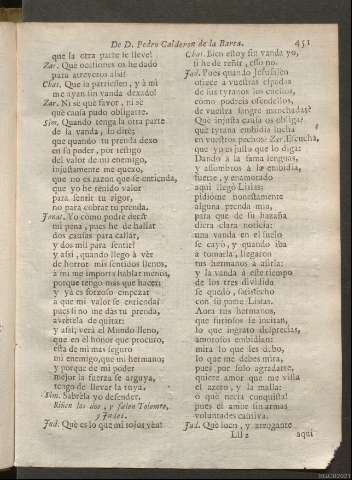 De D. Pedro Calderon de la Barca. 451
que la otra parte le lleve!
Zar. Que ocasiones os he dado
para atreveros assi?
Chat. Que la patricien, y à mi
me ayan sin vanda dexado!
Zar. Ni sè que favor, ni sè
què causa pudo obligarte.
Sim. Quando tenga la otra parte
de la vanda, lo dirè;
que quando tu prenda dexo
en su poder, por testigo
del valor de mi enemigo,
injustamente me quexo,
que no es razon que se entienda,
que yo he tenido valor
para sentir tu rigor,
no para cobrar tu prenda.
Jonat. Yo como podrè decir
mi pena, pues he de hallar
dos causas para callar,
y dos mil para sentir?
y assi, quando llego à vèr
de horror mis sentidos llenos,
à mi me importa hablar menos,
porque tengo mas que hacer;
y yà es forzoso empezar
à que mi valor se entienda:
pues si no me dàs tu prenda,
avrètela de quitar:
y assi, verà el Mundo lleno,
que en el honor que procuro,
esta de mi mas seguro
mi enemigo, que mi hermano;
y porque de mi poder
mejor la fuerza se arguya,
tengo de llevar la suya.
Sim. Sabrèla yo defender.
Riñen los dos, y salen Tolomeo,
y Judas.
Jud. Què es lo que mis ojos vèn?
Chat. Bien estoy sin vanda yo,
si he de reñir, esso no.
Jud. Pues quando Jerusalèn
ofrece à vuestras espadas
de sus tyranos los cuellos,
còmo podreis ofendellos,
de vuestra sangre manchadas?
Què injusta causa os obliga?
què tyrana embidia lucha
en vuestros pechos? Zar. Escucha,
que yo es justo que lo diga:
Dando à la fama lenguas,
y assombros à la embidia,
fuerte, y enamorado
aqui llegò Lisias:
pidiome honestamente
alguna prenda mia,
para que de su hazaña
diera clara noticia:
una vanda en el suelo
se cayò, y quando iba
à tomarla, llegaron
tus hermanos à asirla:
y la vanda à este tiempo
de los tres dividida
se quedò, satisfecho
con su parte Lisias.
Aora tus hermanos,
que furiosos se incitan,
lo que ingrato desprecias,
amorosos embidian:
mira lo que les debo,
lo que me debes mira,
pues por solo agradarte,
quiere amor que me vista
el azero, y la malla:
ò què necia conquista!
pues el amor sin armas
voluntades cautiva.
Jud. Què loco, y arrogante
Lll 2 aqui